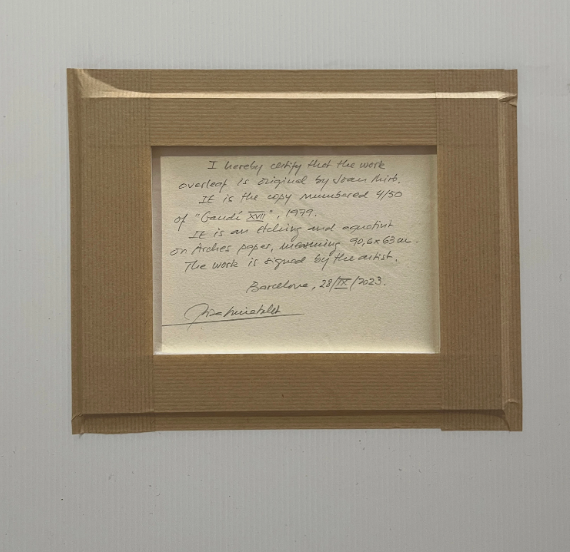 I hereby certify that the work
overleaf is original by Joan Miró.
IE is the copy numbered 4/50
of "Gaudí XVII", 1979.
IE is an Etching and aquatint
on Arches paper, measuring 90,6x63 cm.
The work is signed by the artist.
Barcelona, 28/IX/2023.